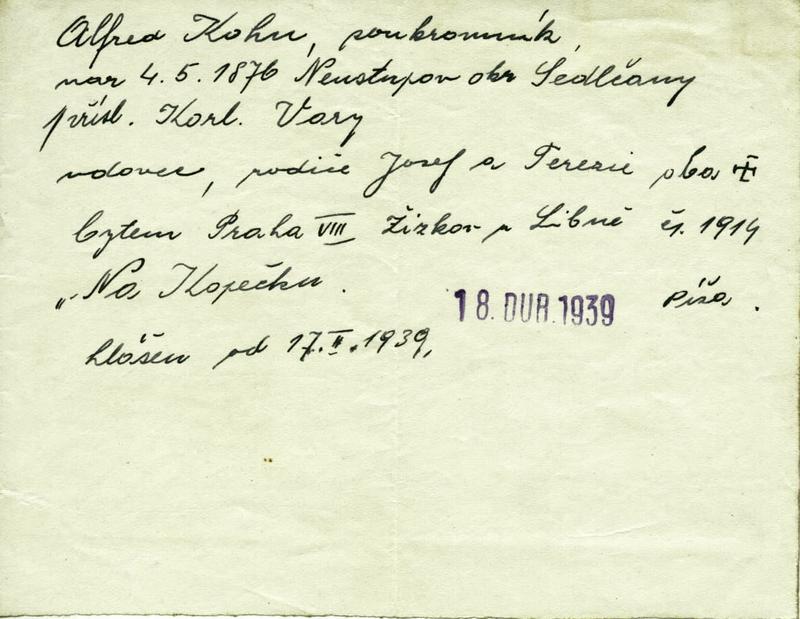 Alfred Kohn, soukromník,
nar 4.5.1876 Neustupov okr Sedlčany
přísl. Karl. Vary
vdovec, rodiče Josef a Terezie oba ‡
bytem Praha VIII Žižkov u Libně čı. 1914
„Na Kopečku.
18. DUB. 1939 Píša.
hlášen od 17.II.1939,